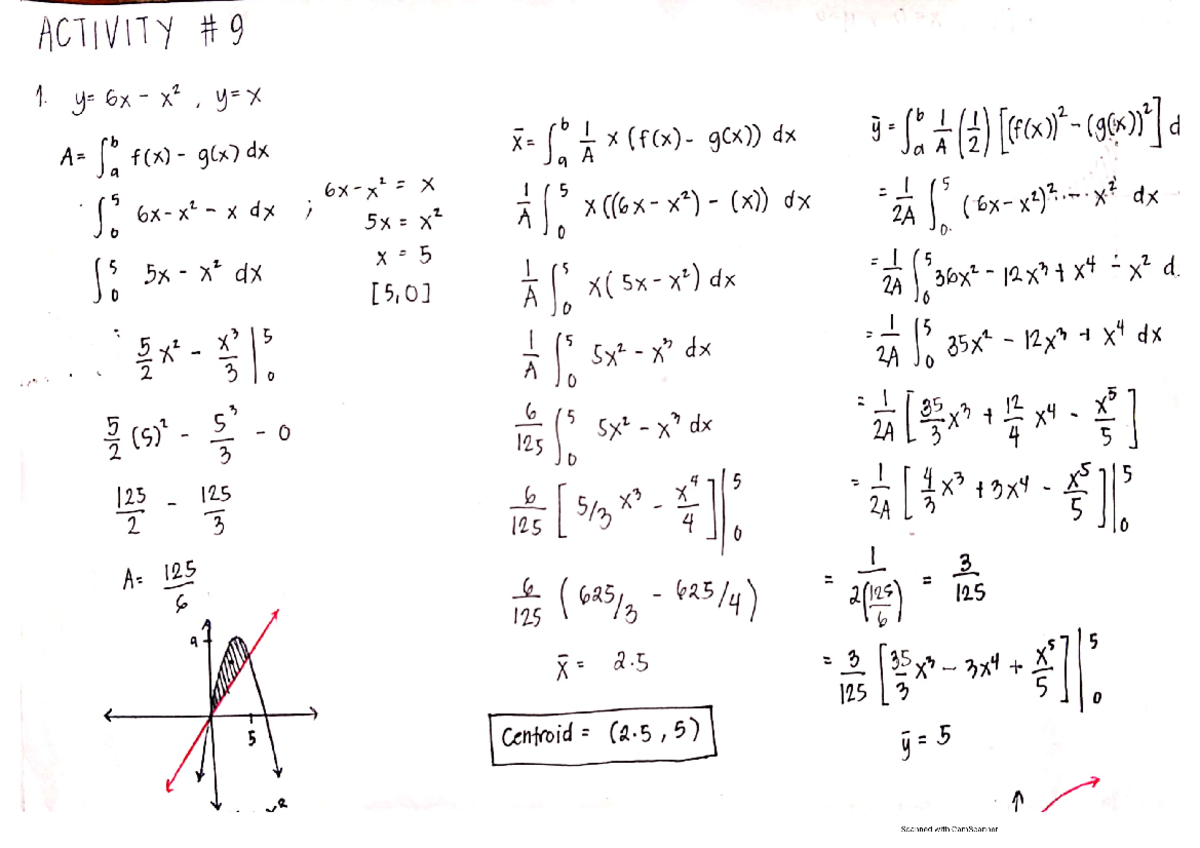 ACTIVITY #9
1. y= 6x - x², y= x
A= ∫_a^b f(x) - g(x) dx
∫_0^5 6x - x² - x dx ; 6x - x² = x
5x = x²
x = 5
[5,0]
∫_0^5 5x - x² dx
5/2 x² - x³/3 |_0^5
5/2 (5)² - 5³/3 - 0
125/2 - 125/3
A= 125/6
9
5
x̄= ∫_a^b 1/A x (f(x) - g(x)) dx
1/A ∫_0^5 x ((6x - x²) - (x)) dx
1/A ∫_0^5 x( 5x - x²) dx
1/A ∫_0^5 5x² - x³ dx
6/125 ∫_0^5 5x² - x³ dx
6/125 [ 5/3 x³ - x⁴/4 ] |_0^5
6/125 ( 625/3 - 625/4 )
x̄ = 2.5
Centroid = (2.5, 5)
ȳ = ∫_a^b 1/A (1/2) [(f(x))² - (g(x))²] d
= 1/2A ∫_0^5 (6x - x²)² - x² dx
= 1/2A ∫_0^5 36x² - 12x³ + x⁴ - x² d
= 1/2A ∫_0^5 35x² - 12x³ + x⁴ dx
= 1/2A [ 35/3 x³ + 12/4 x⁴ - x⁵/5 ]
= 1/2A [ 4/3 x³ + 3x⁴ - x⁵/5 ] |_0^5
= 1/2(125/6) = 3/125
= 3/125 [ 35/3 x³ - 3x⁴ + x⁵/5 ] |_0^5
ȳ = 5
Scanned with CamScanner